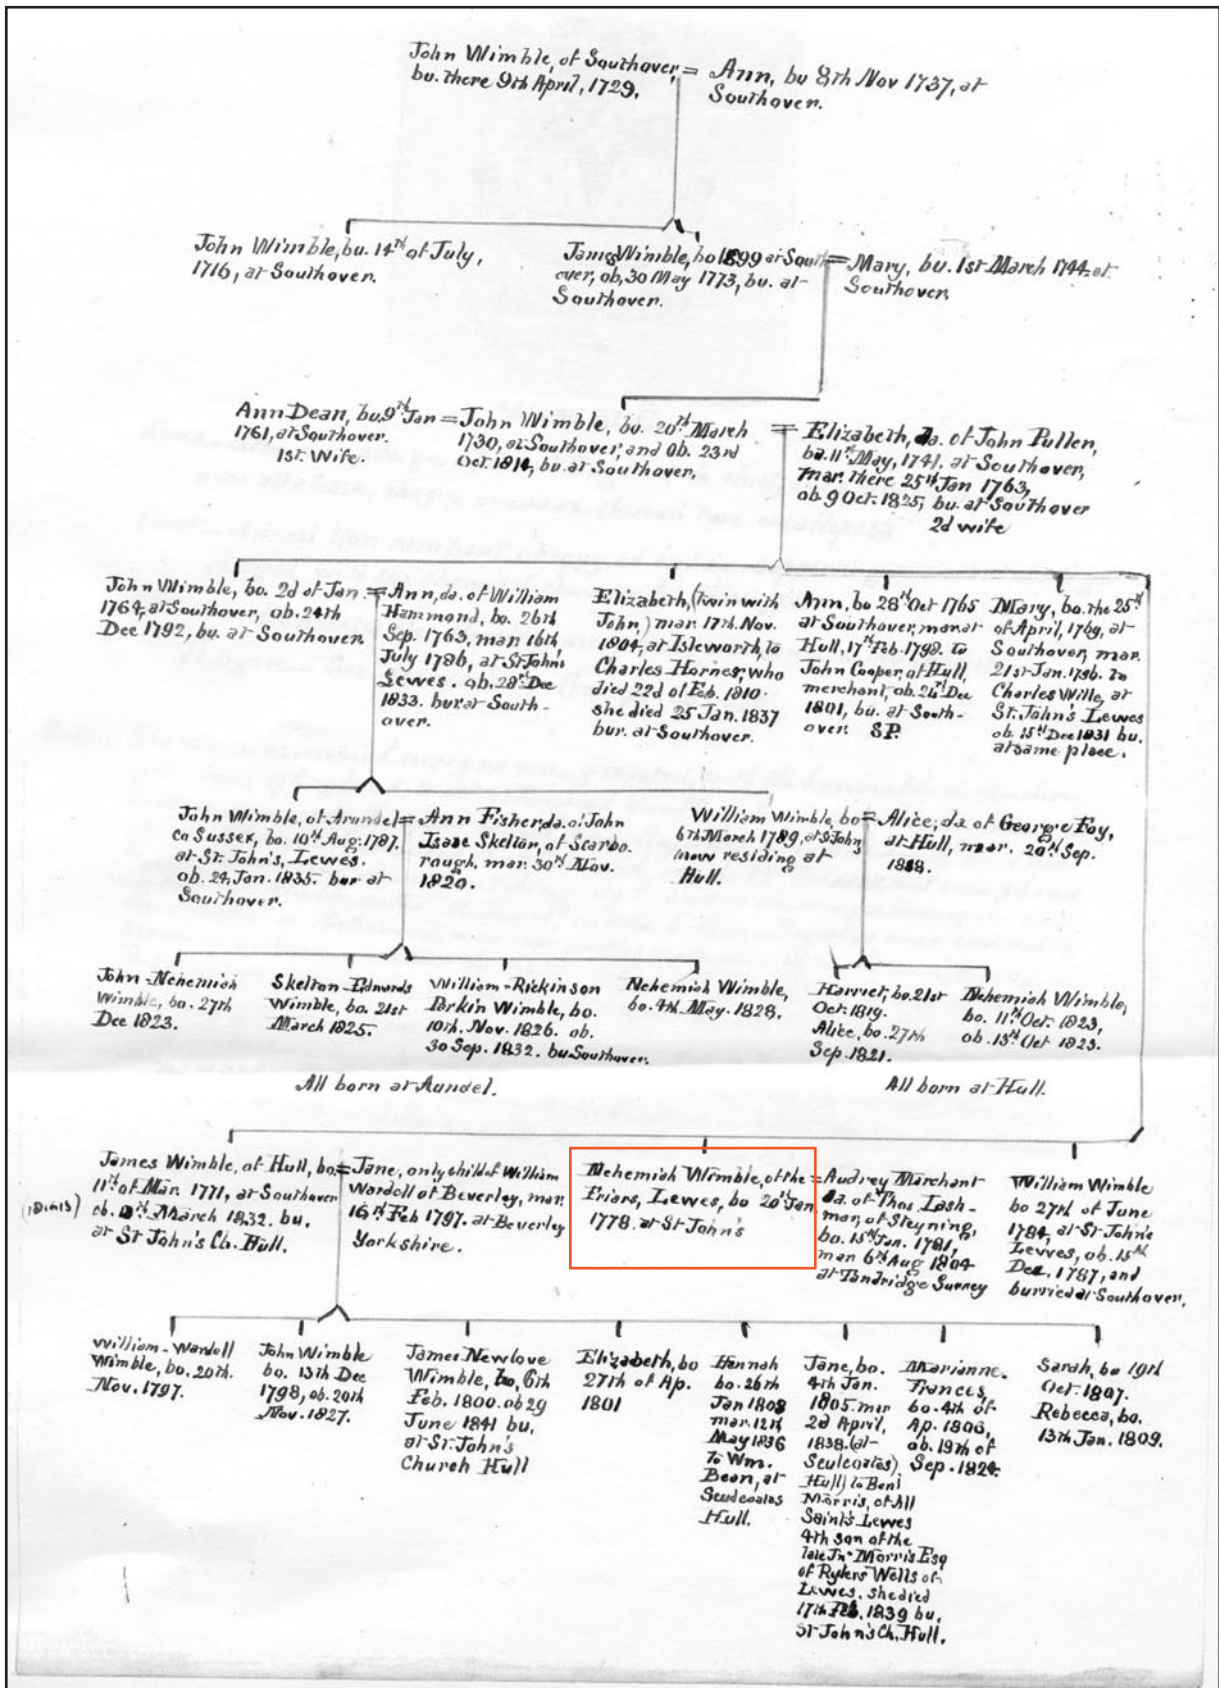 John Wimble, of Southover, =
bu. there 9th April, 1729.
Ann, bu 8th Nov 1737, at
Southover.
John Wimble, bu. 14th of July,
1716, at Southover.
James Wimble, bo 1699 at South
over, ob, 30 May 1773, bu. at
Southover.
= Mary, bu. 1st March 1744 at
Southover,
Ann Dean, bu, 9th Jan =
1761, at Southover.
1st. Wife.
John Wimble, bo. 20th March
1730, at Southover, and Ob. 23rd
Oct. 1814, bu. at Southover,
= Elizabeth, da. of John Pullen,
ba. 11th May, 1741. at Southover,
mar. there 25th Jan 1763,
ob. 9 Oct. 1825, bu. at Southover
2d wife
John Wimble, bo. 2d of Jan. =
1764, at Southover, ob. 24th
Dec 1792, bu. at Southover
Ann, da. of William
Hammond, bo. 26th
Sep. 1763, man 16th
July 1786, at St John's
Lewes. ob. 28th Dec
1833. bur. at South-
over.
Elizabeth, (twin with
John,) mar. 17th. Nov.
1804, at Isleworth, to
Charles Hornes, who
died 22d of Feb. 1810.
she died 25 Jan. 1837
bur. at Southover.
Ann, bo 28th Oct 1765
at Southover, mar. at
Hull, 17th Feb. 1798. to
John Cooper, of Hull,
merchant, ob. 24th Dec
1801, bu. at South-
over. SP.
Mary, bo. the 25th
of April, 1769, at
Southover, mar.
21st Jan. 1796. to
Charles Wille, at
St. John's Lewes
ob. 15th Dec 1831 bu.
at same place.
John Wimble, of Arundel =
co Sussex, bo. 10th Aug. 1787.
at St. John's, Lewes.
ob. 24, Jan. 1835. bur at
Southover.
Ann Fisher, da. of John
Isaac Skelton, of Scarbo-
rough, mar. 30th Nov.
1820.
William Wimble, bo =
6th March 1789, at St John's
now residing at
Hull.
Alice, da. of George Foy,
at Hull, mar. 20th Sep.
1818.
John-Nehemiah
Wimble, bo. 27th
Dec 1823.
Skelton-Edmonds
Wimble, bo. 21st
March 1825.
William-Rickinson
Parkin Wimble, bo.
10th. Nov. 1826. ob.
30 Sep. 1832. bu Southover.
Nehemiah Wimble,
bo. 4th. May. 1828.
Harriet, bo. 21st
Oct. 1819.
Alice, bo. 27th
Sep. 1821.
Nehemiah Wimble,
bo. 11th Oct. 1823,
ob. 13th Oct 1823.
All born at Aundel.
All born at Hull.
James Wimble, of Hull, bo. =
11th of Mar. 1771, at Southover
ob. March 1832. bu.
at St John's Ch. Hull.
Jane, only child of William
Wardell of Beverley, mar.
16th Feb 1797. at Beverley
Yorkshire.
Nehemiah Wimble, of the =
Friars, Lewes, bo 20th Jan
1778. at St John's
Audrey Marchant
da. of Thos Lash-
mar, of Steyning,
bo. 15th Jan. 1781,
man 6th Aug 1804
at Tandridge Surrey
William Wimble
bo 27th of June
1784, at St John's
Lewes, ob. 15th
Dec. 1787, and
burried at Southover.
William-Wardell
Wimble, bo. 20th.
Nov. 1797.
John Wimble
bo. 13th Dec
1798, ob. 20th
Nov. 1827.
James Newlove
Wimble, bo, 6th
Feb. 1800. ob 29
June 1841 bu,
at St. John's
Church Hull
Elizabeth, bo
27th of Ap.
1801
Hannah
bo. 26th
Jan 1803
mar. 12th
May 1836
to Wm.
Bean, at
Sculcoates
Hull.
Jane, bo.
4th Jan.
1805. mar
2d April,
1838. (at
Sculcoates,
Hull) to Benj
Morris, of All
Saint's Lewes
4th son of the
late Jn. Morris Esq
of Rykers Wells of
Lewes. she died
17th Feb. 1839 bu,
St John's Ch, Hull.
Marianne.
Frances,
bo. 4th of
Ap. 1806,
ob. 19th of
Sep. 1824.
Sarah, bo 19th
Oct. 1807.
Rebecca, bo.
13th Jan. 1809.